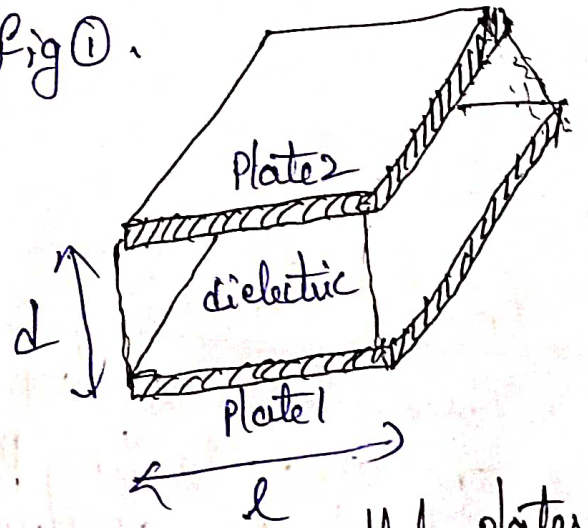 fig ①.
Plate2
dielectric
d
Plate1
l
plates